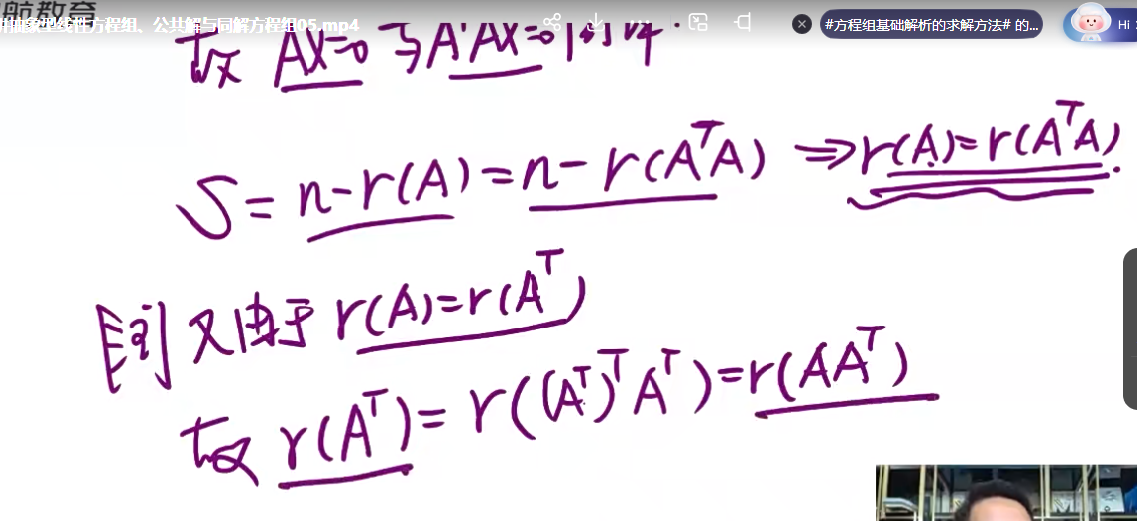 航教育
抽象型线性方程组、公共解与同解方程组05.mp4
#方程组基础解析的求解方法# 的...
Hi
故 AX=0与AᵀAX=0同解.
S=n-r(A)=n-r(AᵀA) ⇒r(A)=r(AᵀA).
[注] 又由于 r(A)=r(Aᵀ)
故 r(Aᵀ)=r((Aᵀ)ᵀAᵀ)=r(AAᵀ)